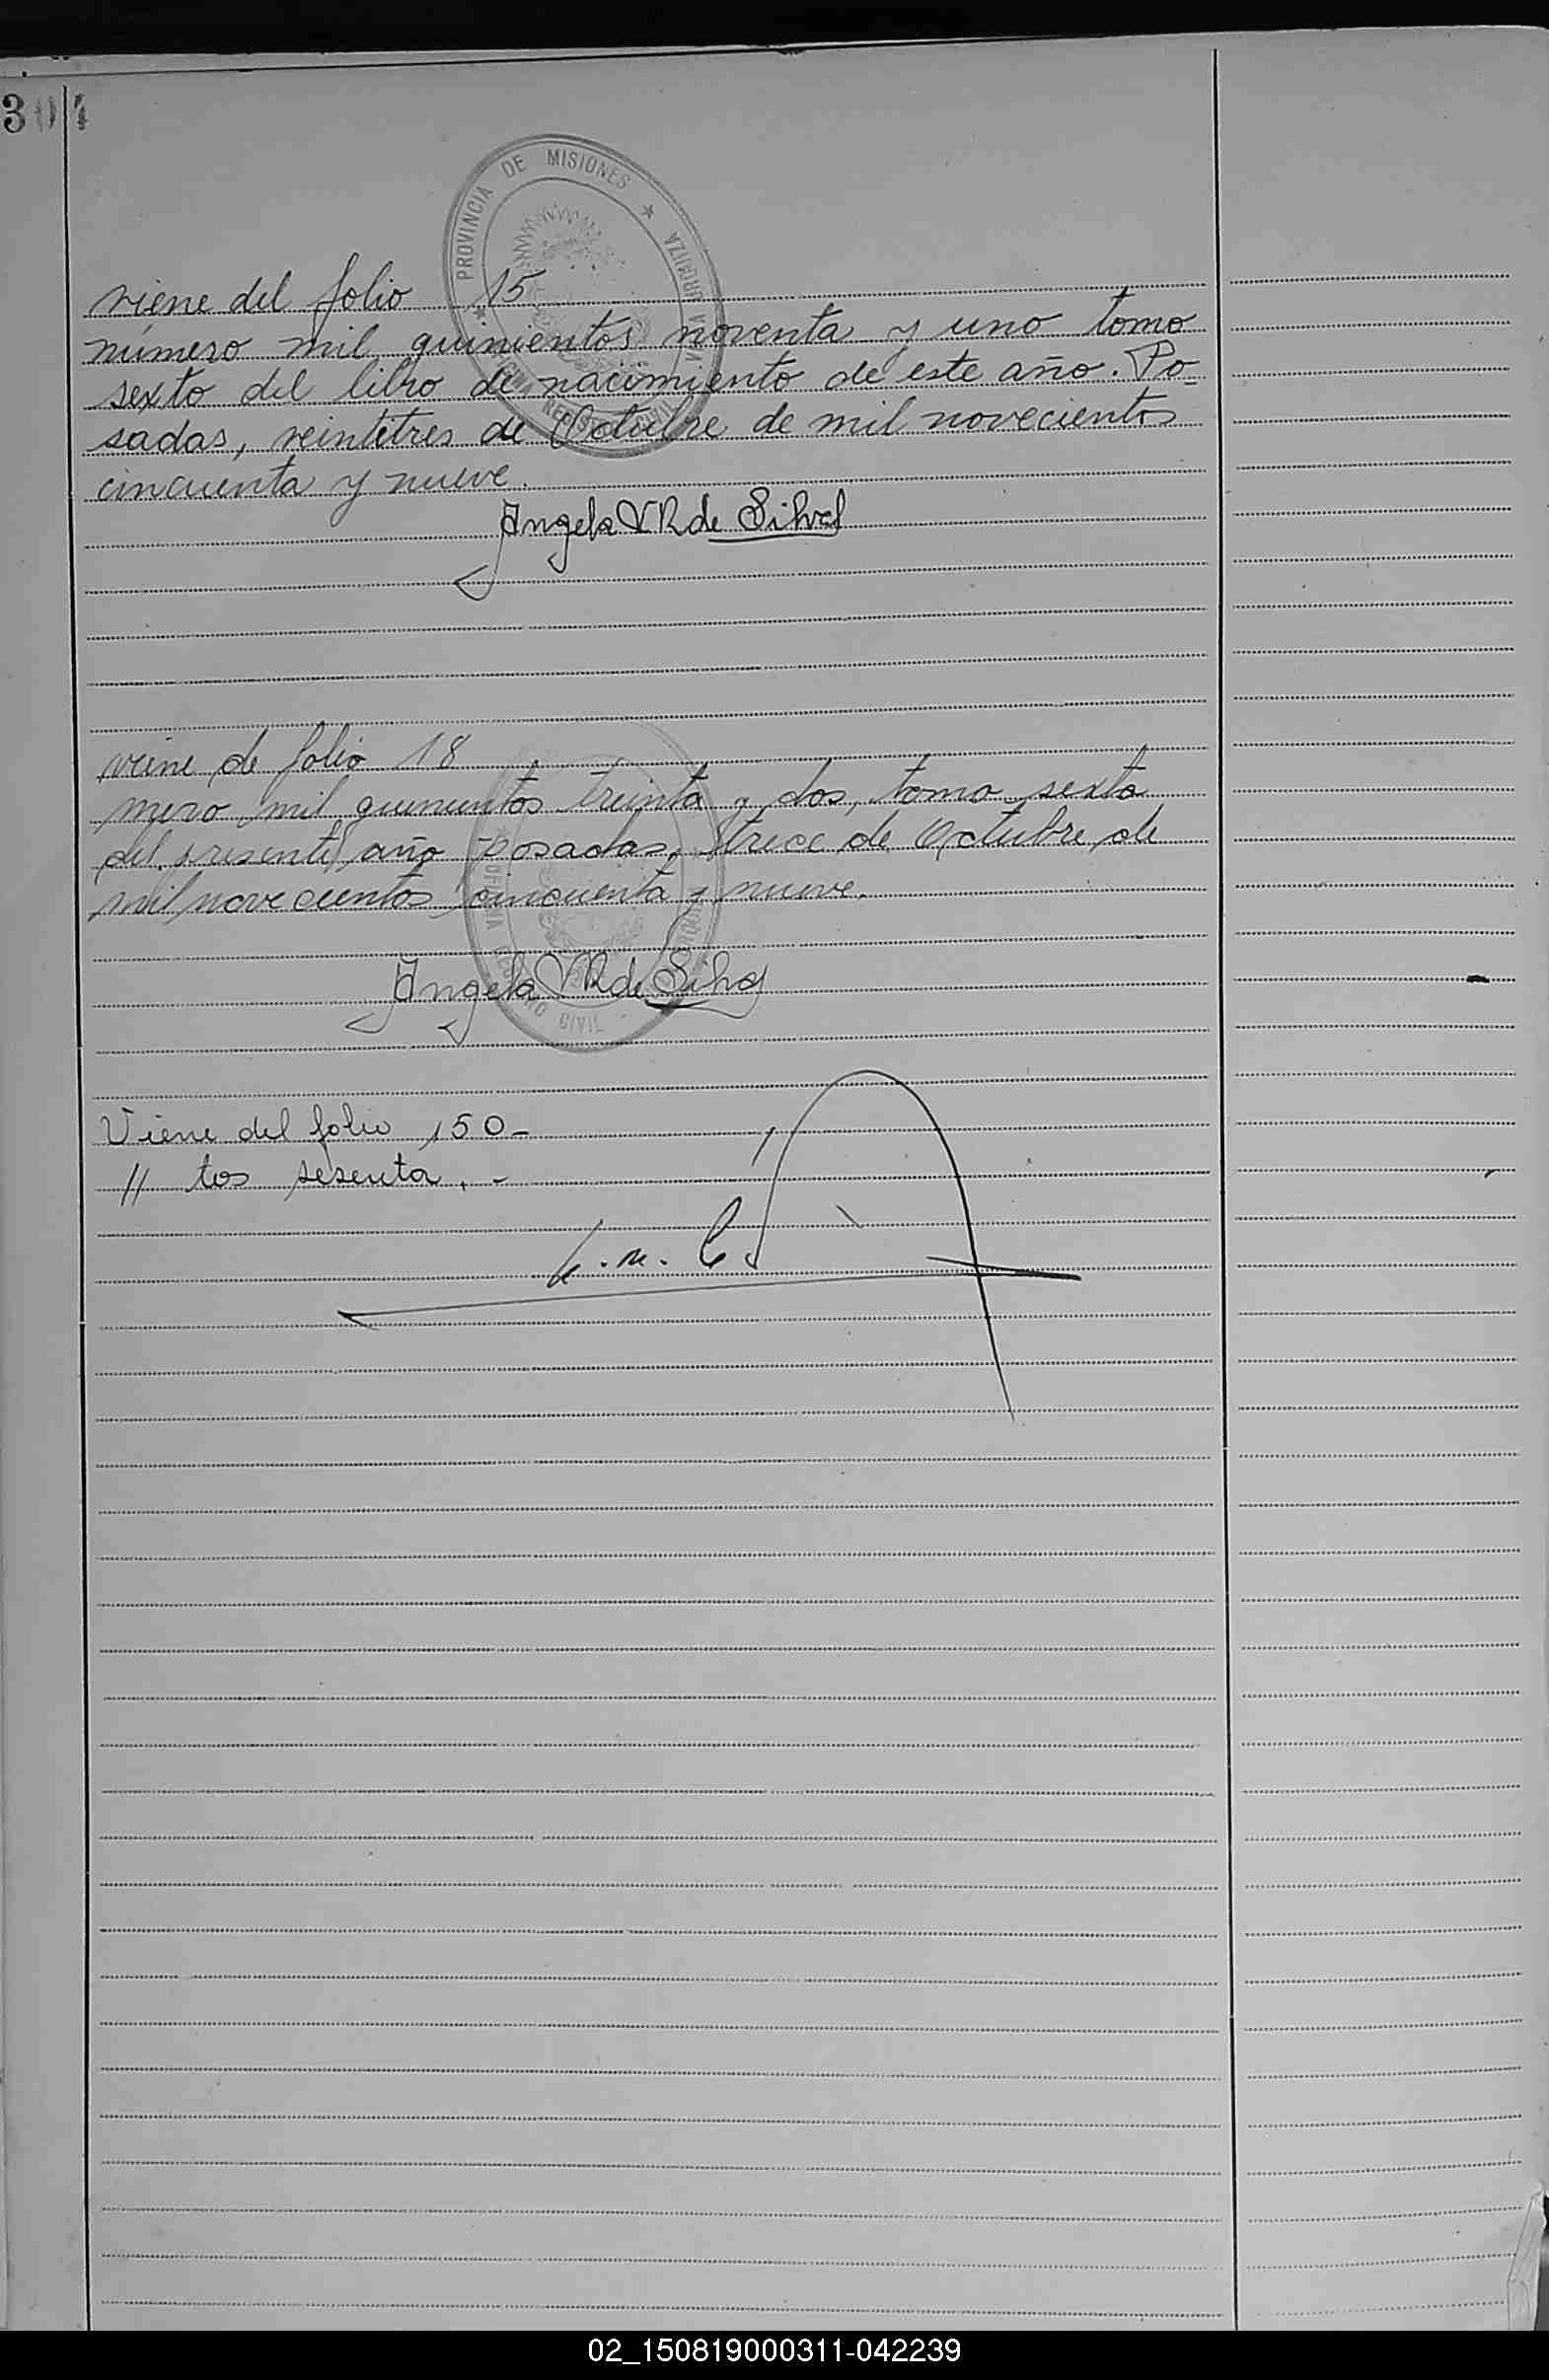 304
PROVINCIA DE MISIONES
viene del folio 15
número mil quinientos noventa y uno tomo
sexto del libro de nacimiento de este año. Po-
sadas, veintetres de Octubre de mil novecientos
cincuenta y nueve.
Angela VR de Silva
viene de folio 18
mero mil quinientos treinta y dos, tomo sexto
del presente año Posadas, trece de Octubre de
mil novecientos cincuenta y nueve.
Angela VR de Silva
CIVIL
Viene del folio 150-
// tos sesenta. -
02_150819000311-042239